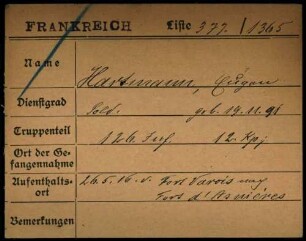 FRANKREICH Liste 377 / 1365
Name Hartmann, Eugen
Dienstgrad Sold. geb. 19.11.91
Truppenteil 126. Inf. 12. Kp.
Ort der Ge-
fangennahme
Aufenthalts-
ort 26.5.16. v. Fort Varois nach
Fort d'Asnières
Bemerkungen